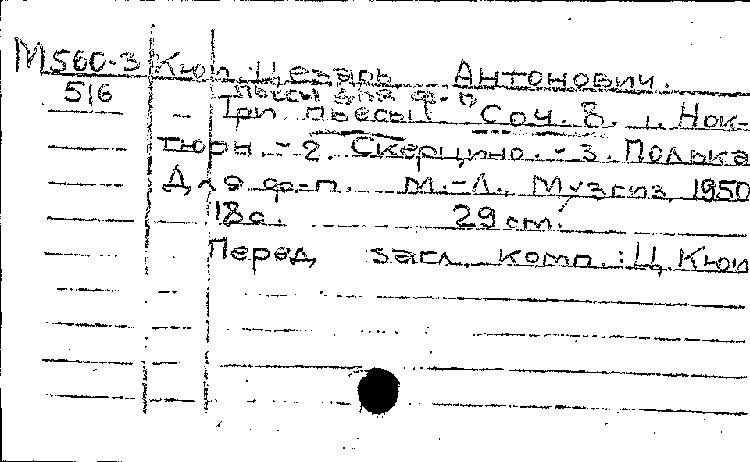 М560-3 Кюи Цезарь Антонович.
516 Пьесы для ф-п
- Три пьесы. Соч. 8. 1. Нок-
тюрн. - 2. Скерцино. - 3. Полька
Для ф-п. М.-Л., Музгиз, 1950
18с. 29 cm.
Перед загл. комп.: Ц. Кюи